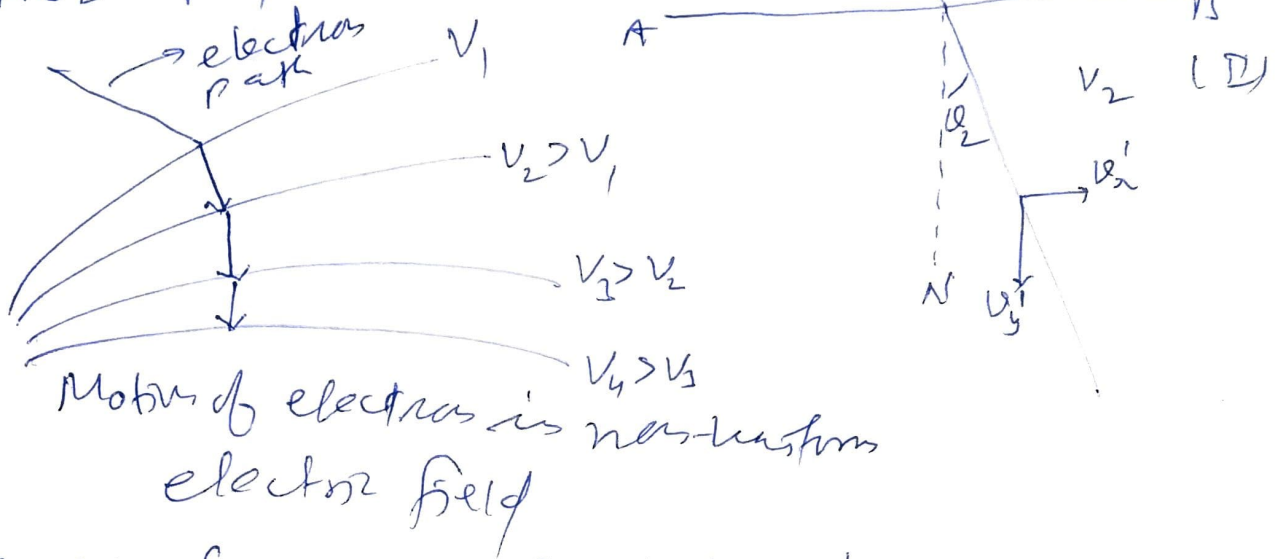 electron
path
V₁
V₂ > V₁
V₃ > V₂
V₄ > V₃
Motion of electron in non-uniform
electric field
A
B
V₂ (II)
θ₂
vₓ'
N
v_y'